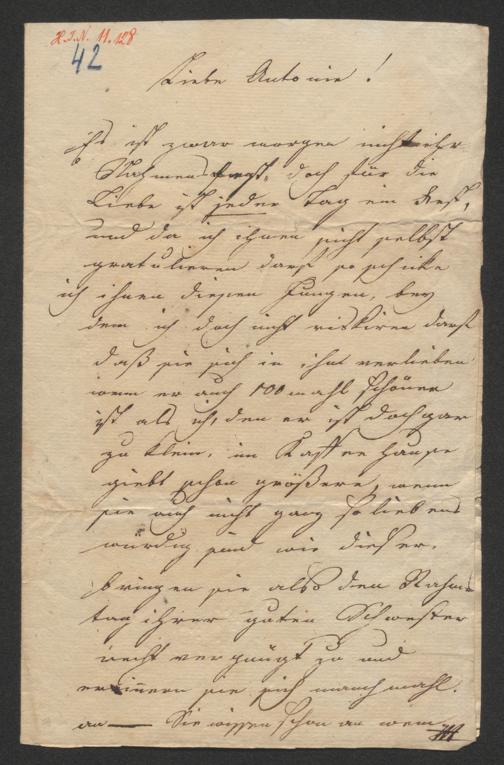 H.I.N. 11.128
42
Liebe Antonie!
Es ist zwar morgen nicht ihr
Nahmensfest, doch für die
Liebe ist jeder Tag ein Fest,
und da ich ihnen nicht selbst
gratulieren darf so schicke
ich ihnen diesen Jungen, bey
dem ich doch nicht riskiren darf
daß sie sich in ihm verlieben
wenn er auch 100 mahl schöner
ist als ich, den er ist doch gar
zu klein, im Kaffee Hause
giebt schon größere, wenn
sie auch nicht ganz so liebens
würdig sind wie dieser.
bringen sie also den Nahms
tag ihrer guten Schwester
recht vergnügt zu und
erinnern sie sich manchmahl.
an — Sie wissen schon an wem